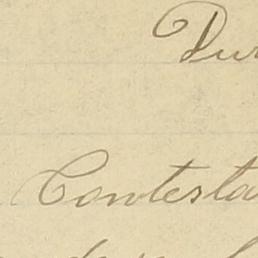 Dur
Contesta